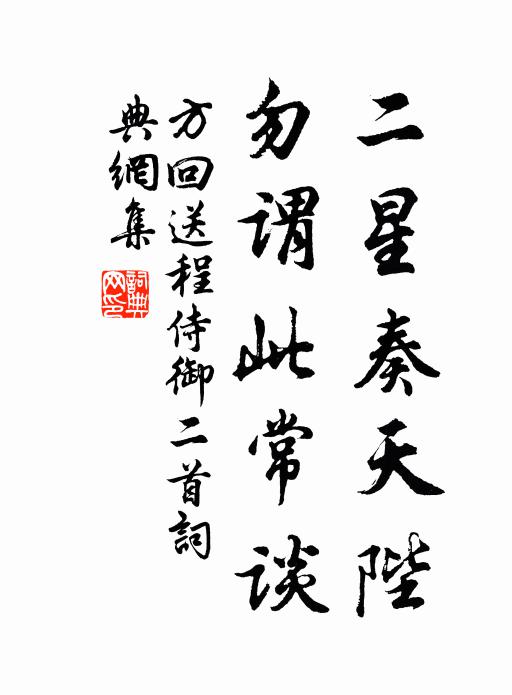 二星奏天陛
勿谓此常谈
方回送程侍御二首詞
典網集
詞典网印